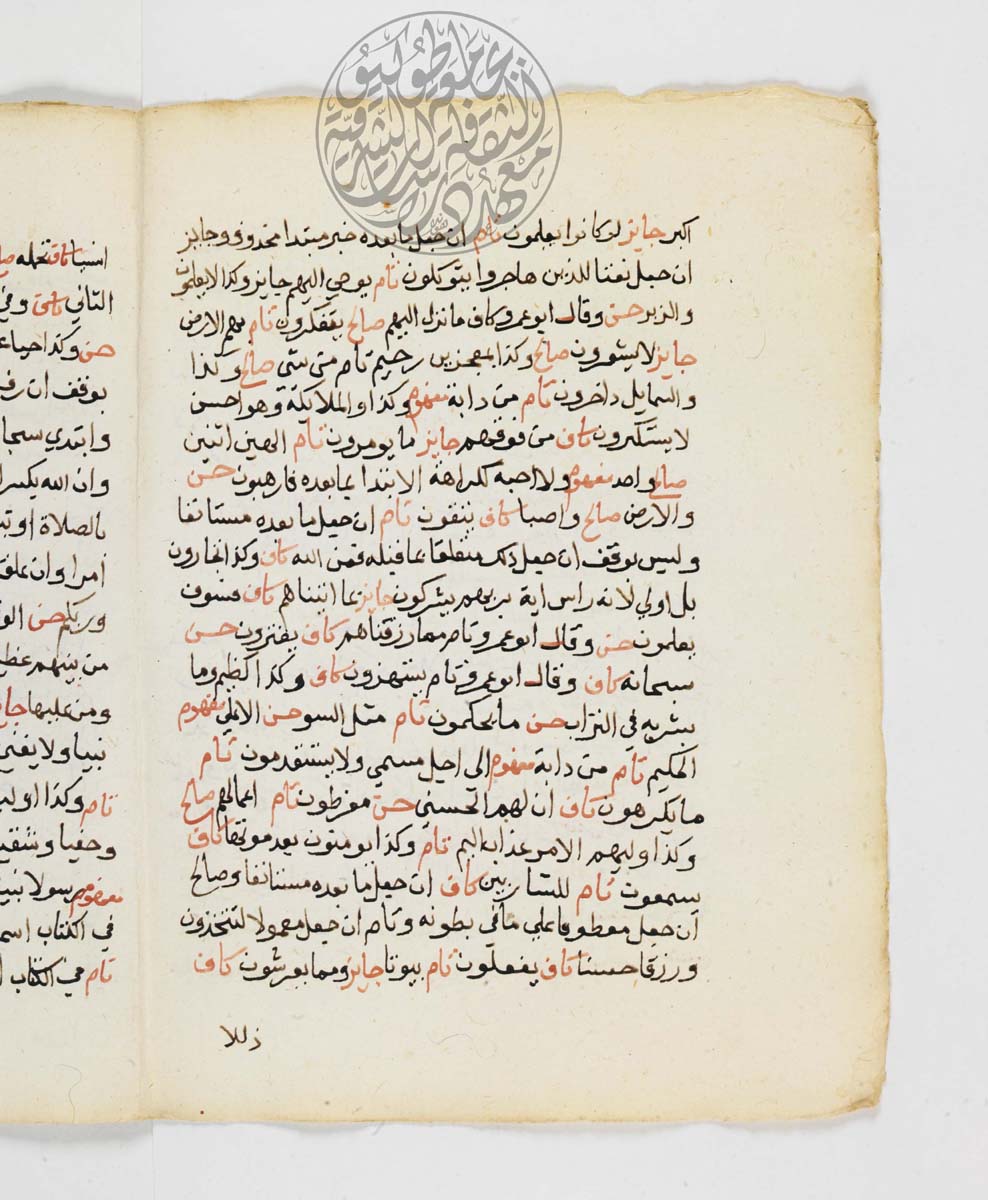 اكبر جايز لو كانوا يعلمون تام ان جعل ما بعده خبر مبتدا محذوف وجايز
ان جعل نعتا للذين هاجروا يتوكلون تام يوحي اليهم جايز وكذا لا يعلمون
والزبر حسن وقال ابو عمرو كاف ما نزل اليهم صالح يتفكرون تام بهم الارض
جايز لا يشعرون صالح وكذا بمعجزين رحيم تام من شي صالح وكذا
والشمايل داخرون تام من دابة مفهوم وكذا والملايكة وهو احسن
لا يستكبرون كاف من فوقهم جايز ما يومرون تام الهين اثنين
صالح واحد مفهوم ولا احبه لكراهة الابتدا بما بعده فارهبون حسن
والارض صالح واصبا كاف تتقون تام ان جعل ما بعده مستانفا
وليس بوقف ان جعل ذلك متعلقا بما قبله فمن الله كاف وكذا تجارون
بل اولي لانه راس اية بربهم يشركون جايز بما اتيناهم كاف فسوف
يعلمون حسن وقال ابو عمرو تام مما رزقناهم كاف يفترون حسن
سبحانه كاف وقال ابو عمرو تام يشتهون كاف وكذا كظيم وما
بشر به في التراب حسن ما يحكمون تام مثل السو حسن الاعلي مفهوم
الحكيم تام من دابة مفهوم الي اجل مسمي ولا يستقدمون تام
ما يكرهون كاف ان لهم الحسني حسن مفرطون تام اعمالهم صالح
وكذا وليهم الامر عذاب اليم تام وكذا يومنون بعد موتها كاف
يسمعون تام للشاربين كاف ان جعل ما بعده مستانفا وصالح
ان جعل معطوفا علي ما في بطونه وتام ان جعل معمولا لتتخذون
ورزقا حسنا كاف يعقلون تام بيوتا جايز ومما يعرشون كاف
ذللا
انسيا كاف تحمله
الثاني كاف
حسن وكذا حيا
بوقف ان
وابتدي سبحانه
وان الله بكسر
بالصلاة او
امرا وان علق
وربكم حسن
من بينهم
ومن عليها
نبيا ولا يغني
تام وكذا
وحفيا وشقيا
مفهوم رسولا نبيا
في الكتاب
تام في الكتاب